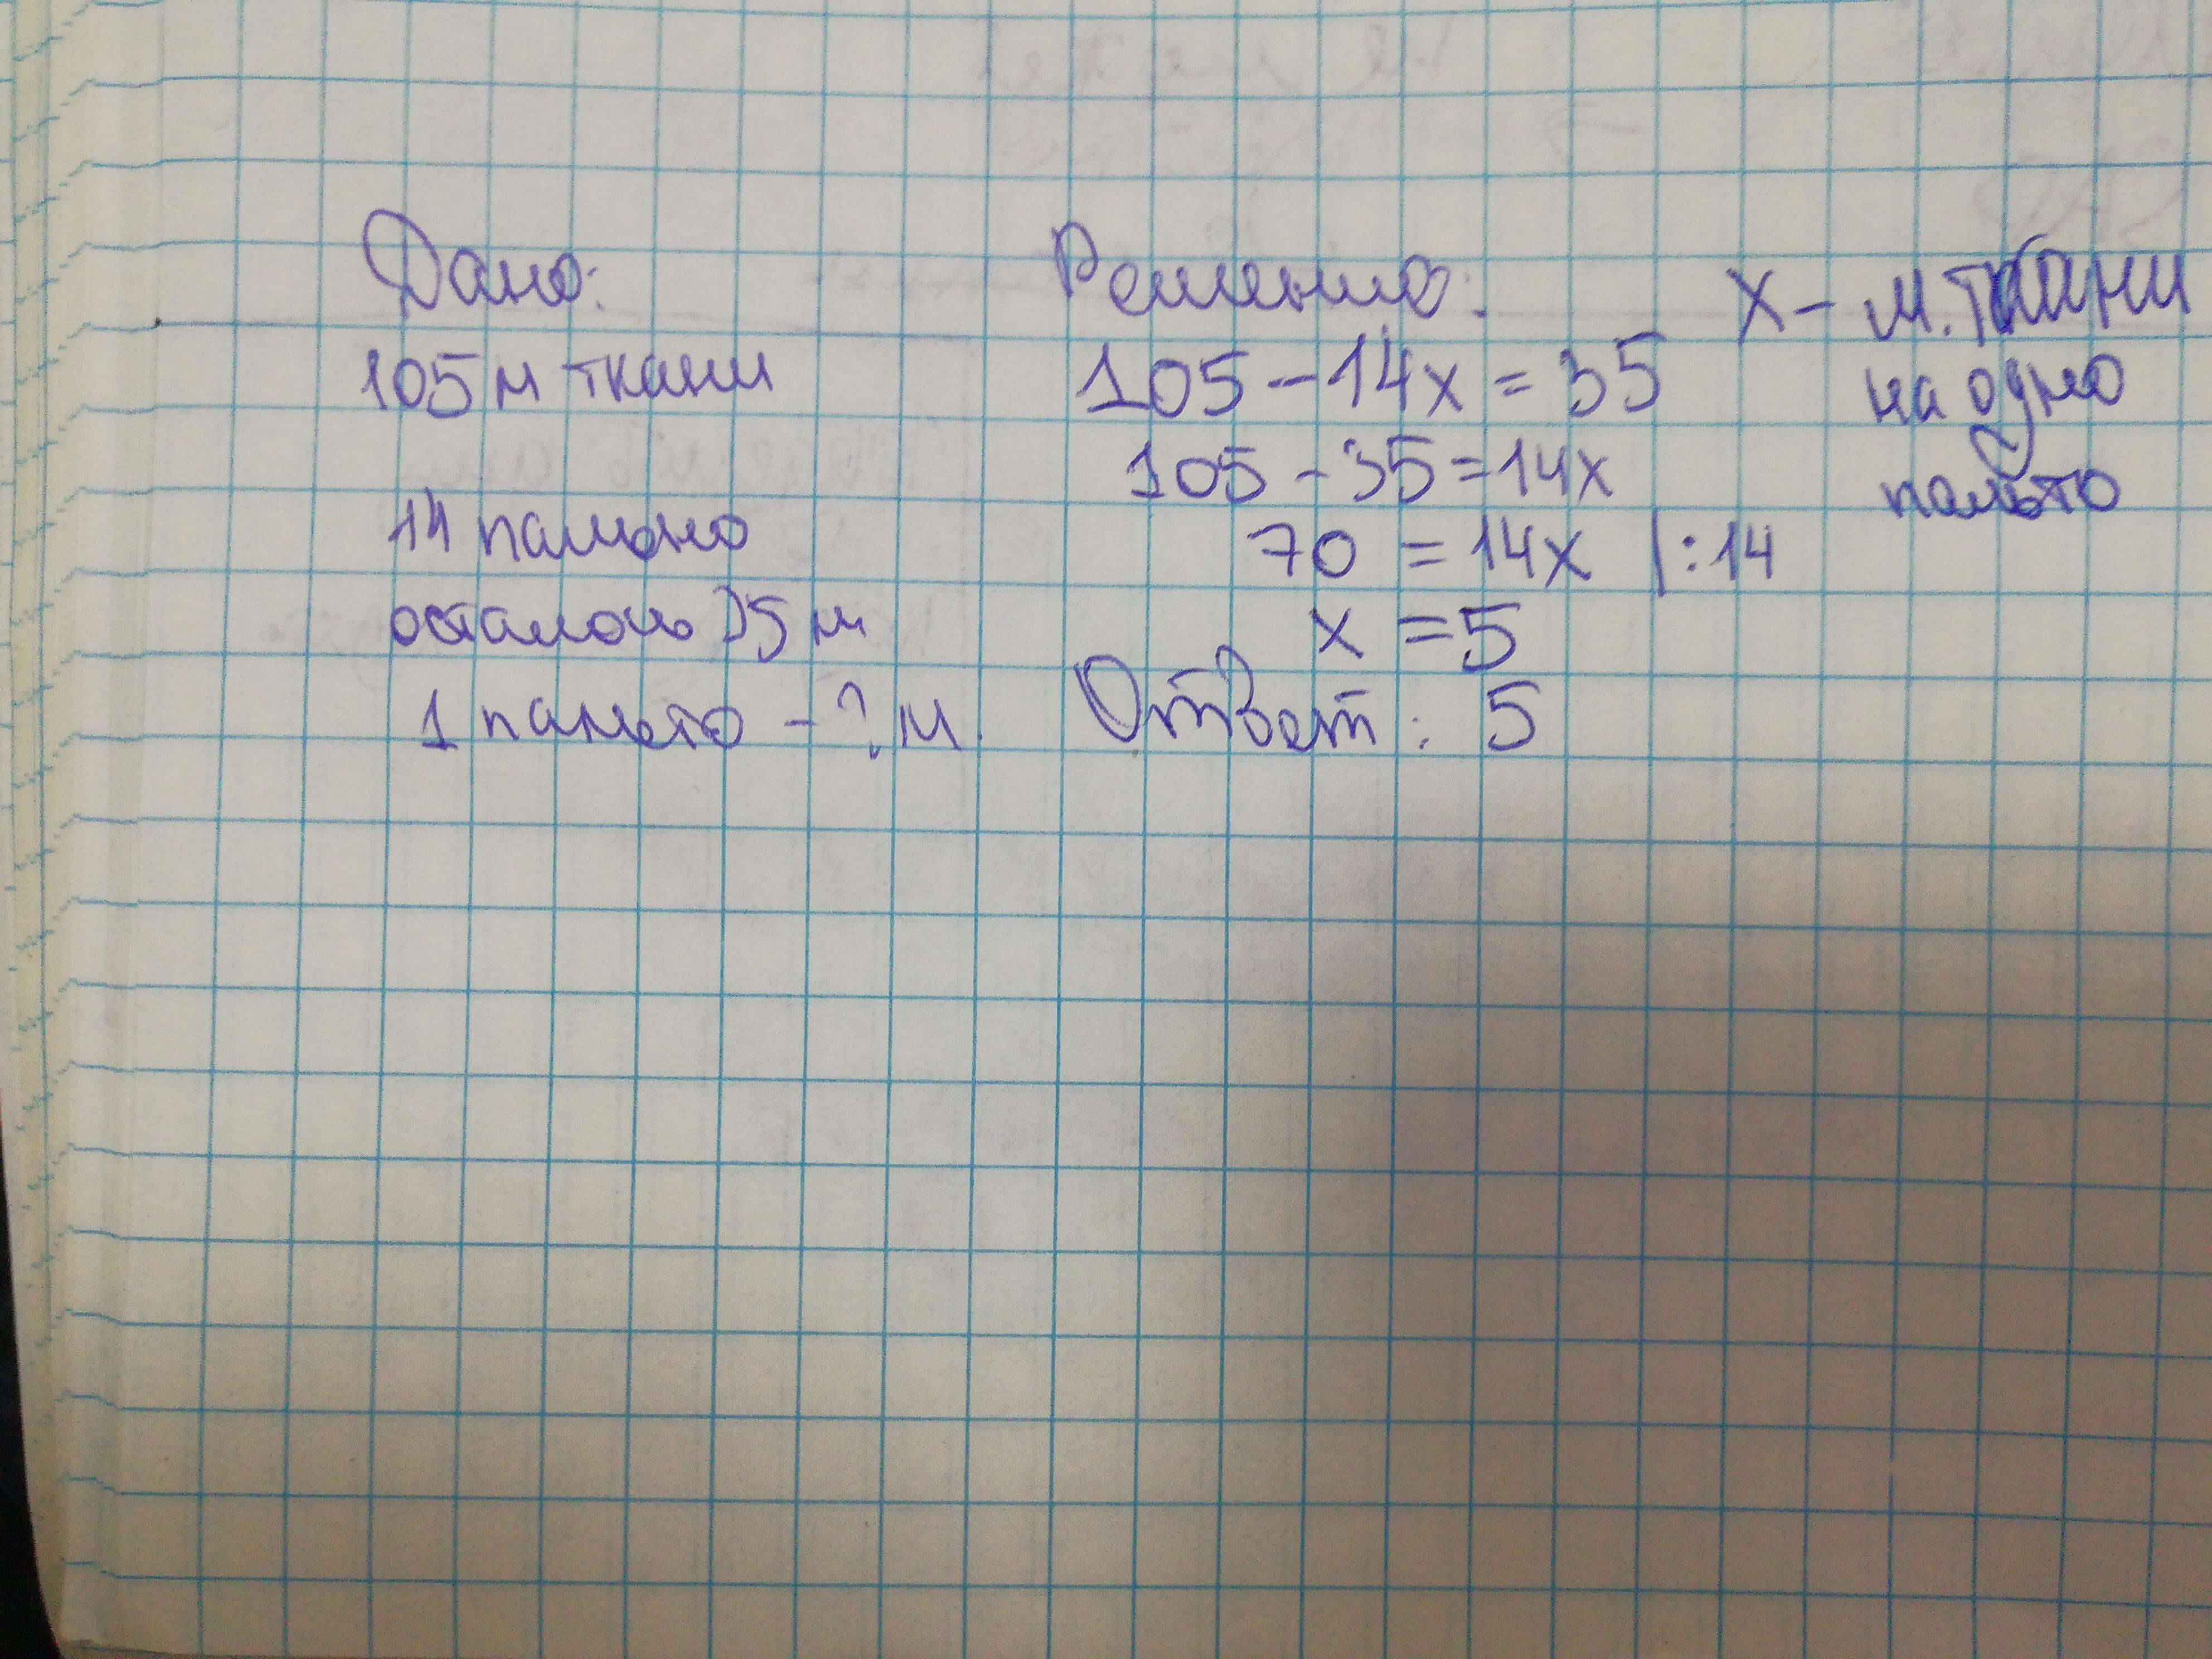 Дано:
105 м ткани
14 пальто
осталось 35 м
1 пальто - ? м.
Решение:
105 - 14x = 35
105 - 35 = 14x
70 = 14x |:14
x = 5
Ответ: 5
x - м. ткани
на одно
пальто